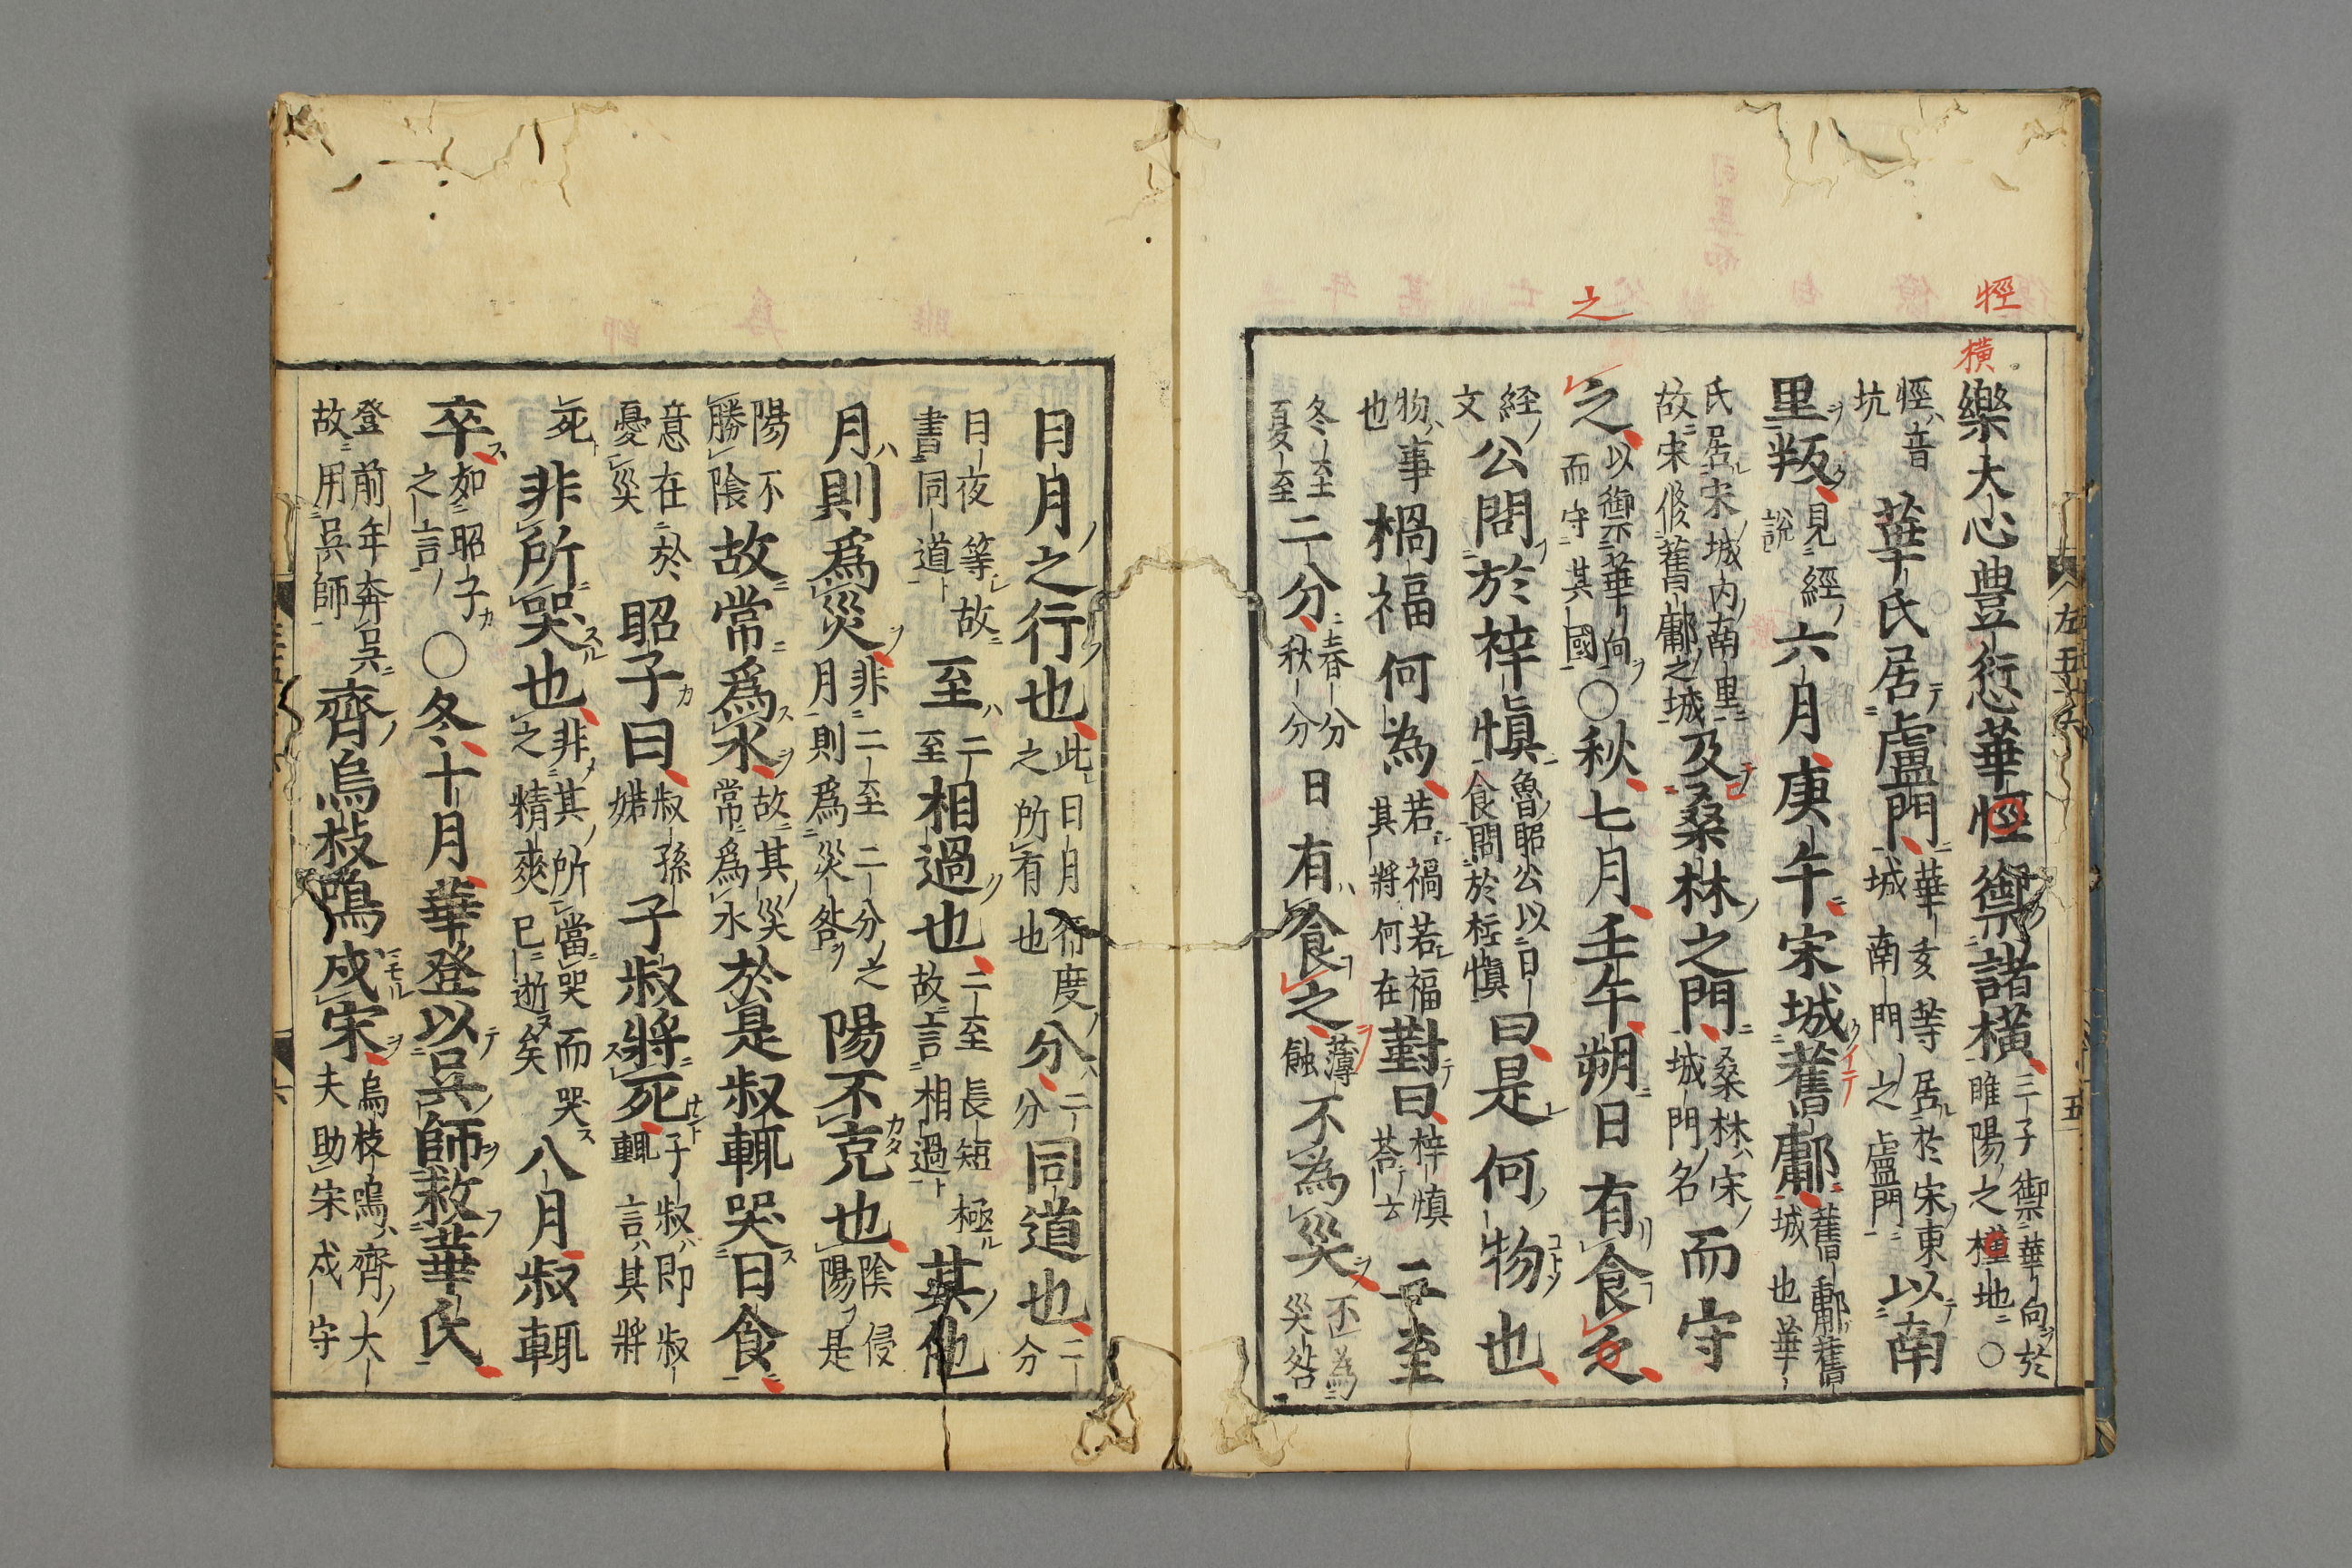 牼
之
橫
樂大心豊愆華牼禦諸橫三子禦華向於睢陽之橫地○
牼音坑華氏居盧門華亥等居於宋東城南門之盧門以南
里叛見經說六月庚午宋城舊鄘舊鄘舊城也華
氏居宋城内南里故宋修舊鄘之城及桑林之門桑林宋城門名而守
之以禦華向而守其國○秋七月壬午朔日有食之
經文公問於梓慎魯昭公以日食問於梓慎曰是何物也
物事也禍福何為若禍若福其將何在對曰梓慎荅云二至
冬至夏至二分春分秋分日有食之薄蝕不為災不為災咎
日月之行也此日月之所有也行度分二分同道也二分
日夜等故書同道至二至相過也二至長短極故言相過其他
月則爲災非二至二分之月則爲災咎陽不克也陰侵陽是
陽不勝陰故常爲水故其災常爲水於是叔輒哭日食
意在於憂災昭子曰叔孫婼子叔將死子叔即叔輒言其將
死非所哭也非其所當哭而哭之精爽已逝矣八月叔輒
卒如昭子之言○冬十月華登以吳師救華氏
登前年奔吳故用吳師齊烏枝鳴戍宋烏枝鳴齊大夫助宋戍守
左五
五
六